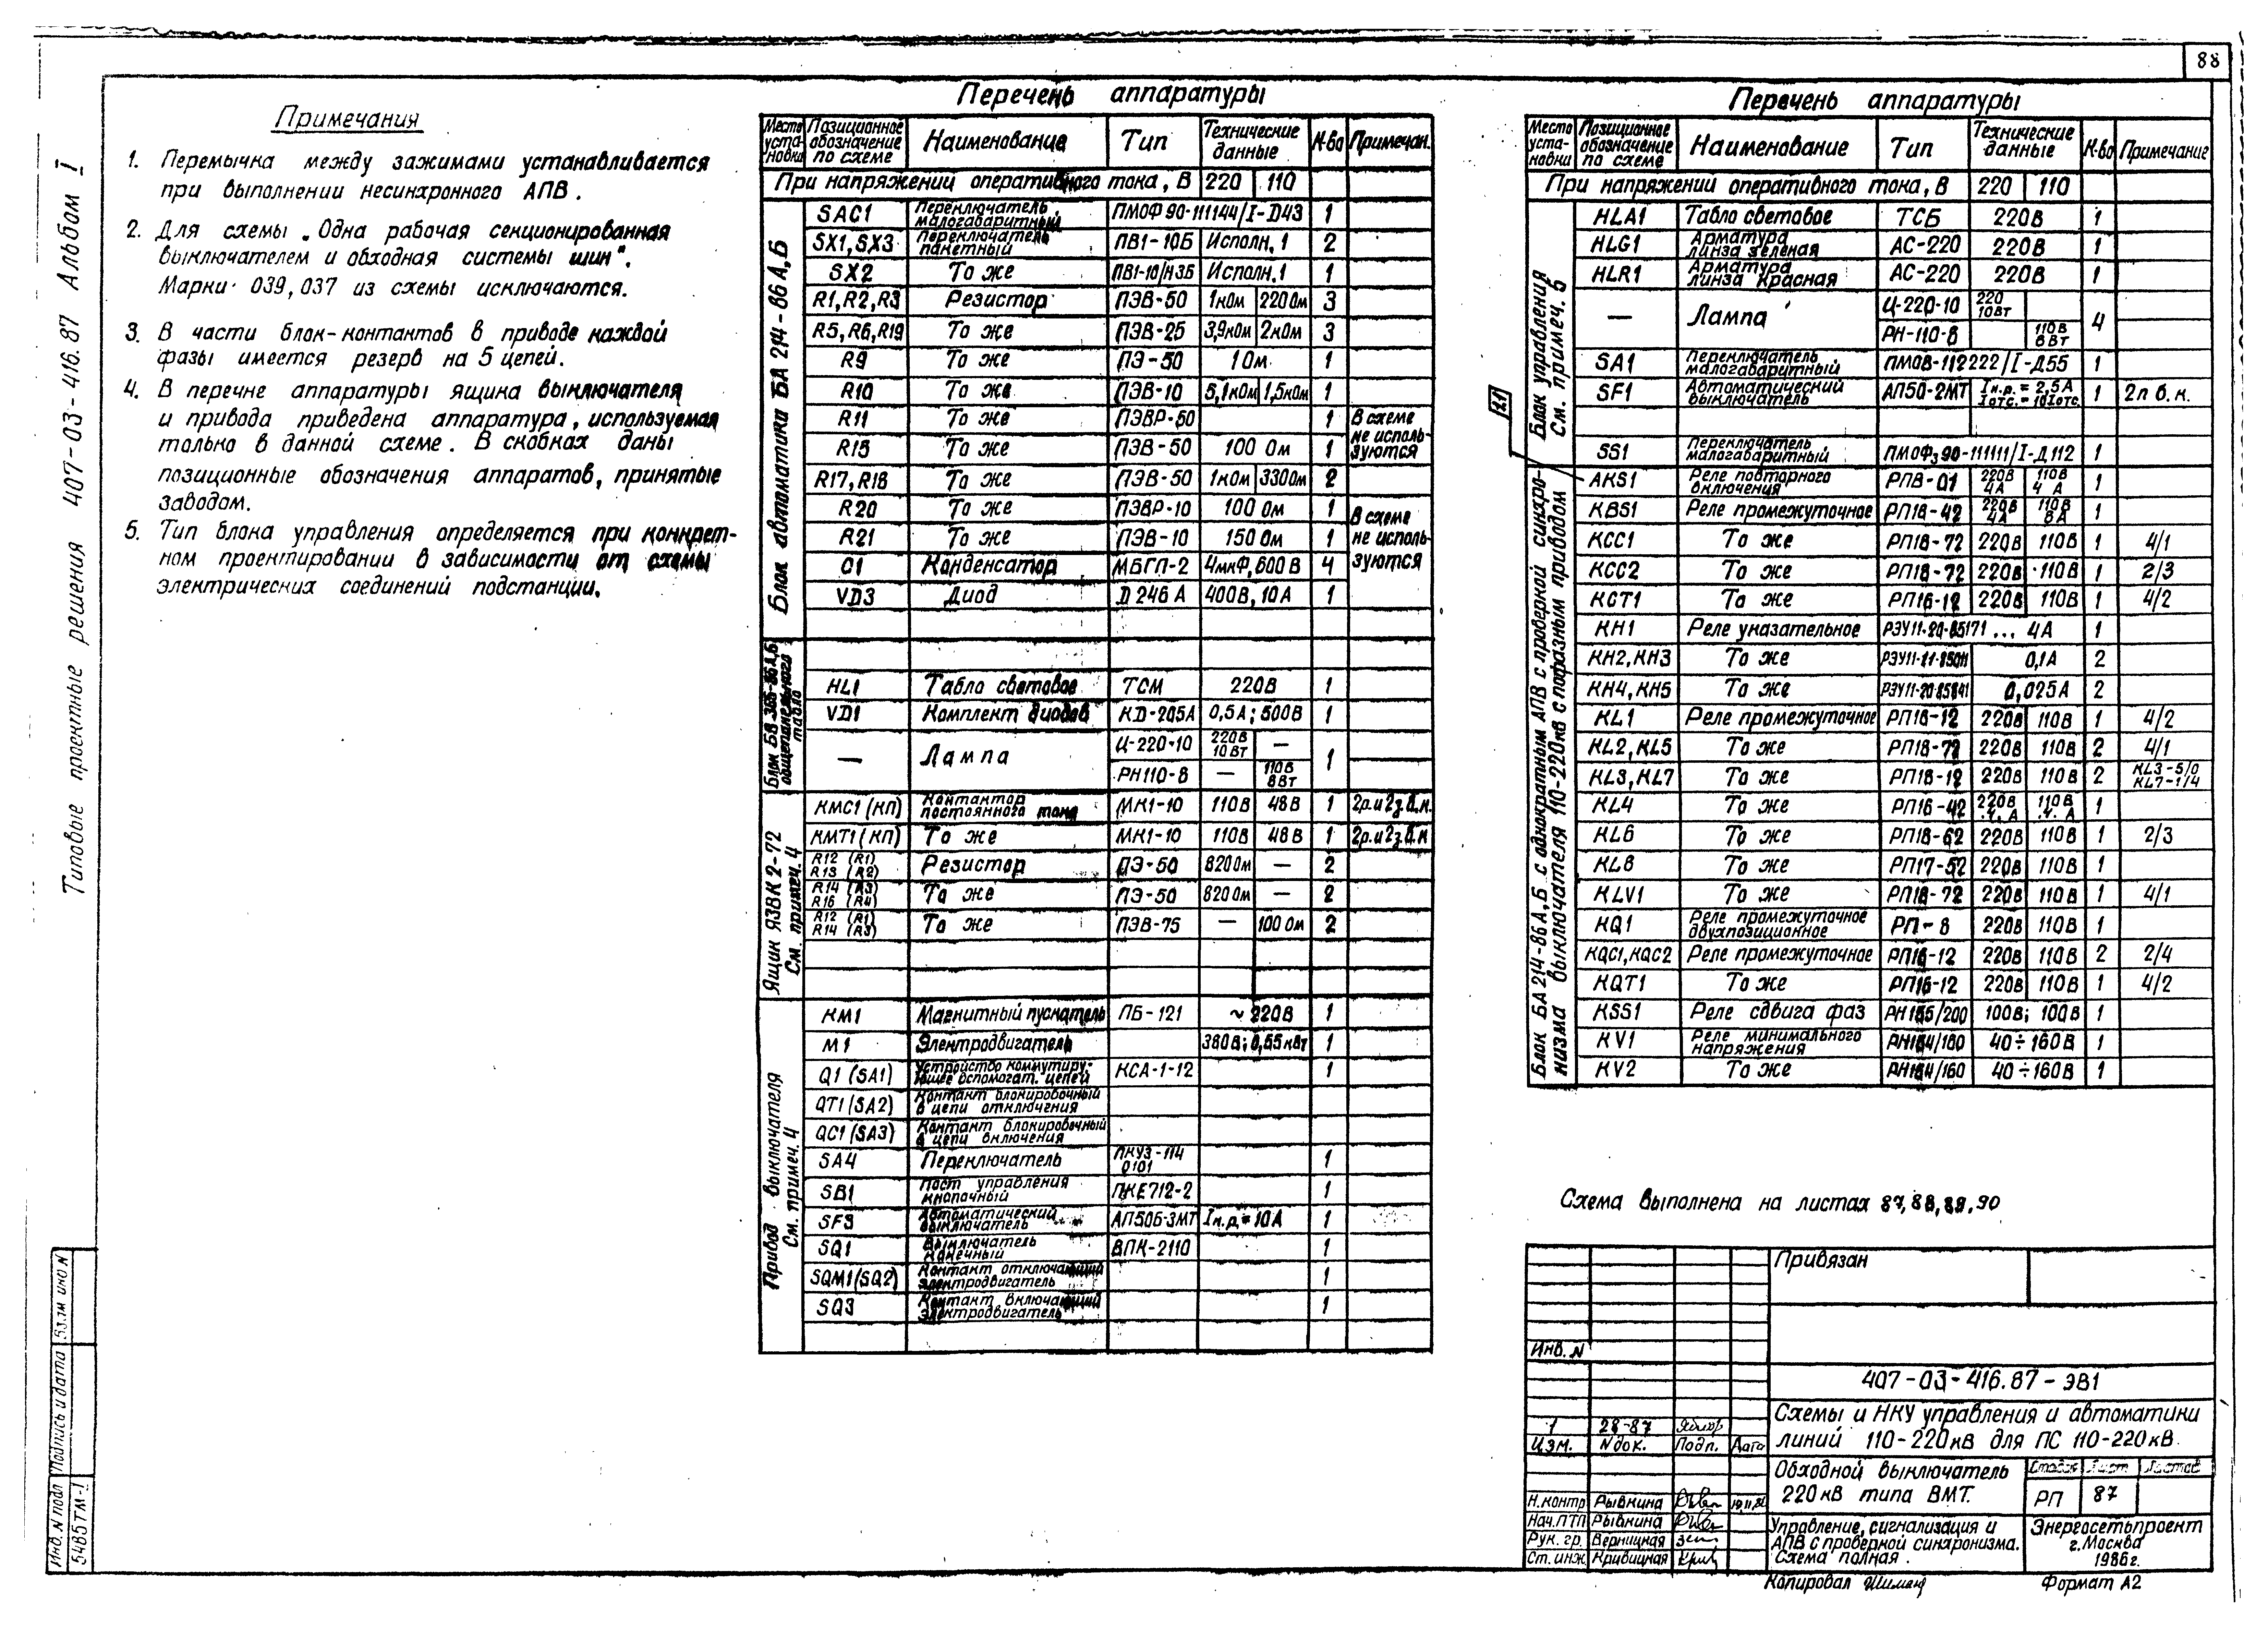 88
Типовые проектные решения 407-03-416.87 Альбом I
Примечания
1. Перемычка между зажимами устанавливается
при выполнении несинхронного АПВ.
2. Для схемы „Одна рабочая секционированная
выключателем и обходная системы шин".
Марки 039, 037 из схемы исключаются.
3. В части блок-контактов в приводе каждой
фазы имеется резерв на 5 цепей.
4. В перечне аппаратуры ящика выключателя
и привода приведена аппаратура, используемая
только в данной схеме. В скобках даны
позиционные обозначения аппаратов, принятые
заводом.
5. Тип блока управления определяется при конкрет-
ном проектировании в зависимости от схемы
электрических соединений подстанции.
Перечень аппаратуры
Место установки | Позиционное обозначение по схеме | Наименование | Тип | Технические данные | К-во | Примечан.
При напряжении оперативного тока, В | 220 | 110
Блок автоматика БА 214-86 А,Б
SAC1 Переключатель малогабаритный ПМОФ90-111144/I-Д43 1
SX1, SX3 Переключатель пакетный ПВ1-10Б Исполн. 1 2
SX2 То же ПВ1-10/Н3Б Исполн. 1 1
R1, R2, R3 Резистор ПЭВ-50 1кОм 220 Ом 3
R5, R6, R19 То же ПЭВ-25 3,9кОм 2кОм 3
R9 То же ПЭ-50 1 Ом 1
R10 То же ПЭВ-10 5,1кОм 1,5кОм 1
R11 То же ПЭВР-50 1 В схеме
R15 То же ПЭВ-50 100 Ом 1 не исполь-зуются
R17, R18 То же ПЭВ-50 1кОм 330Ом 2
R20 То же ПЭВР-10 100 Ом 1 В схеме
R21 То же ПЭВ-10 150 Ом 1 не исполь-
C1 Конденсатор МБГП-2 4мкФ, 600 В 4 зуются
VD3 Диод Д 246 А 400В, 10А 1
общепанельного табло
HL1 Табло световое ТСМ 220В 1
VD1 Комплект диодов КД-205А 0,5А; 500В 1
— Лампа Ц-220-10 220В 10Вт — 1
РН110-8 — 110В 8Вт
Ящик ЯЗВК 2-72
См. примеч. 4
КМС1 (КП) Контактор постоянного тока МК1-10 110В 48В 1 2р.и2з.б.к.
КМТ1 (КП) То же МК1-10 110В 48В 1 2р.и2з.б.к
R12 (R1) R13 (R2) Резистор ПЭ-50 820Ом — 2
R14 (R3) R16 (R4) То же ПЭ-50 820Ом — 2
R12 (R1) R14 (R3) То же ПЭВ-75 — 100 Ом 2
Привод выключателя
См. примеч. 4
КМ1 Магнитный пускатель ПБ-121 ~ 220В 1
М1 Электродвигатель 380В; 0,55кВт 1
Q1 (SA1) Устройство коммутирующее вспомогат. цепей КСА-1-12 1
QT1 (SA2) Контакт блокировочный в цепи отключения
QC1 (SA3) Контакт блокировочный в цепи включения
SA4 Переключатель ПКУ3-114 0101 1
SB1 Пост управления кнопочный ПКЕ712-2 1
SF3 Автоматический выключатель АП50Б-3МТ Iн.р.=10А 1
SQ1 Выключатель конечный ВПК-2110 1
SQM1(SQ2) Контакт отключающий электродвигатель 1
SQ3 Контакт включающий электродвигатель 1
Перечень аппаратуры
Место установки | Позиционное обозначение по схеме | Наименование | Тип | Технические данные | К-во | Примечание
При напряжении оперативного тока, В | 220 | 110
Блок управления
См. примеч. 5
HLA1 Табло световое ТСБ 220В 1
HLG1 Арматура линза зеленая АС-220 220В 1
HLR1 Арматура линза красная АС-220 220В 1
— Лампа Ц-220-10 220 10Вт 4
РН-110-8 110В 8Вт
SA1 Переключатель малогабаритный ПМОВ-112222/I-Д55 1
SF1 Автоматический выключатель АП50-2МТ Iн.р.=2,5А Iотс.=10Iотс. 1 2п б.к.
SS1 Переключатель малогабаритный ПМОФ390-111111/I-Д112 1
Блок БА 214-86 А,Б с однократным АПВ с проверкой синхро-
низма выключателя 110-220кВ с пофазным приводом
AKS1 Реле повторного включения РПВ-01 220В 4А 110В 4А 1
KBS1 Реле промежуточное РП16-42 220В 4А 110В 8А 1
KCC1 То же РП18-72 220В 110В 1 4/1
KCC2 То же РП18-72 220В 110В 1 2/3
KCT1 То же РП16-12 220В 110В 1 4/2
KH1 Реле указательное РЭУ11-20-85171 ... 4А 1
KH2, KH3 То же РЭУ11-11-85011 0,1А 2
KH4, KH5 То же РЭУ11-20-85841 0,025А 2
KL1 Реле промежуточное РП16-12 220В 110В 1 4/2
KL2, KL5 То же РП18-72 220В 110В 2 4/1
KL3, KL7 То же РП16-12 220В 110В 2 KL3-5/0 KL7-1/4
KL4 То же РП16-42 220В 4А 110В 4А 1
KL6 То же РП18-62 220В 110В 1 2/3
KL8 То же РП17-52 220В 110В 1
KLV1 То же РП18-72 220В 110В 1 4/1
KQ1 Реле промежуточное двухпозиционное РП-8 220В 110В 1
KQC1, KQC2 Реле промежуточное РП16-12 220В 110В 2 2/4
KQT1 То же РП16-12 220В 110В 1 4/2
KSS1 Реле сдвига фаз РН155/200 100В; 100В 1
KV1 Реле минимального напряжения РН154/160 40÷160В 1
KV2 То же РН154/160 40÷160В 1
Схема выполнена на листах 87, 88, 89, 90
Привязан
Инв. N
407-03-416.87-ЭВ1
Схемы и НКУ управления и автоматики
линий 110-220кВ для ПС 110-220кВ
1 28-87
Изм. Nдок. Подп. Дата
Обходной выключатель
220кВ типа ВМТ.
Стадия Лист Листов
РП 87
Н.контр Рывкина
Нач.ПТП Рывкина
Рук. гр. Верницкая
Ст. инж Кривицкая
Управление, сигнализация и
АПВ с проверкой синхронизма.
Схема полная.
Энергосетьпроект
г.Москва
1986г.
Копировал
Формат А2
Инв. N подл Подпись и дата Взам инв N
5485ТМ-1